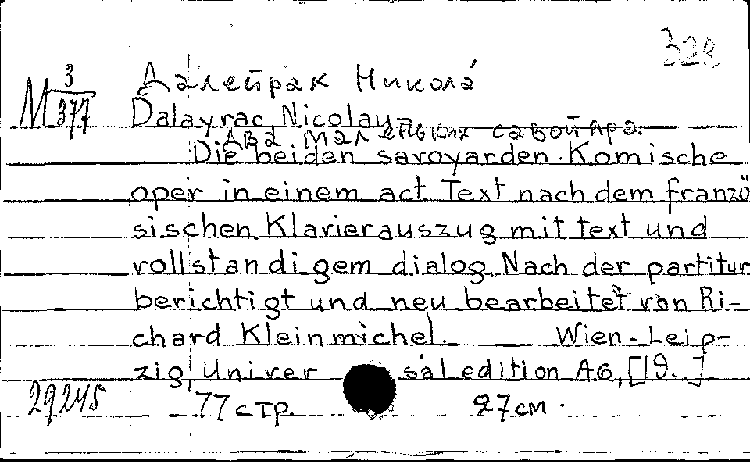 328
Далейрак Никола́
М 3/377
Dalayrac, Nicolay
Два маленьких савойяра.
Die beiden savoyarden. Komische
oper in einem act. Text nach dem franzö
sischen. Klavierauszug mit text und
vollstandigem dialog. Nach der partitur
berichtigt und neu bearbeitet von Ri-
chard Kleinmichel. Wien-Leip-
zig, Univer sal edition AG, [19..]
29245 77 стр. 27 см.